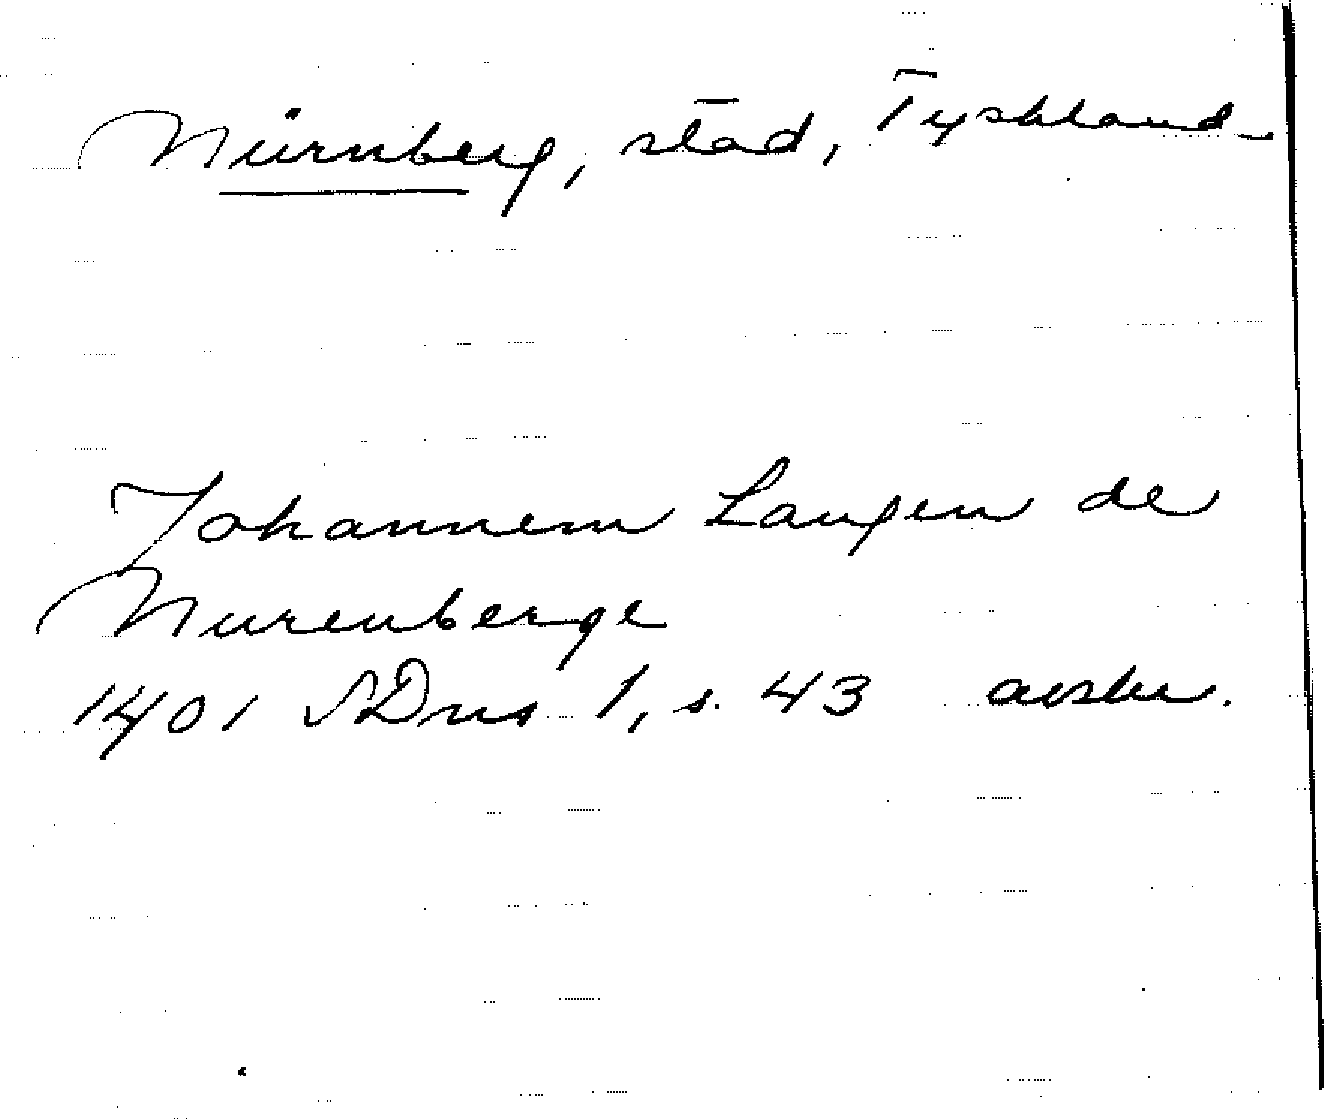 Nürnberg, stad, Tyskland
Johannem Langen de
Nurenberge
1401 SDns 1, s. 43 avskr.